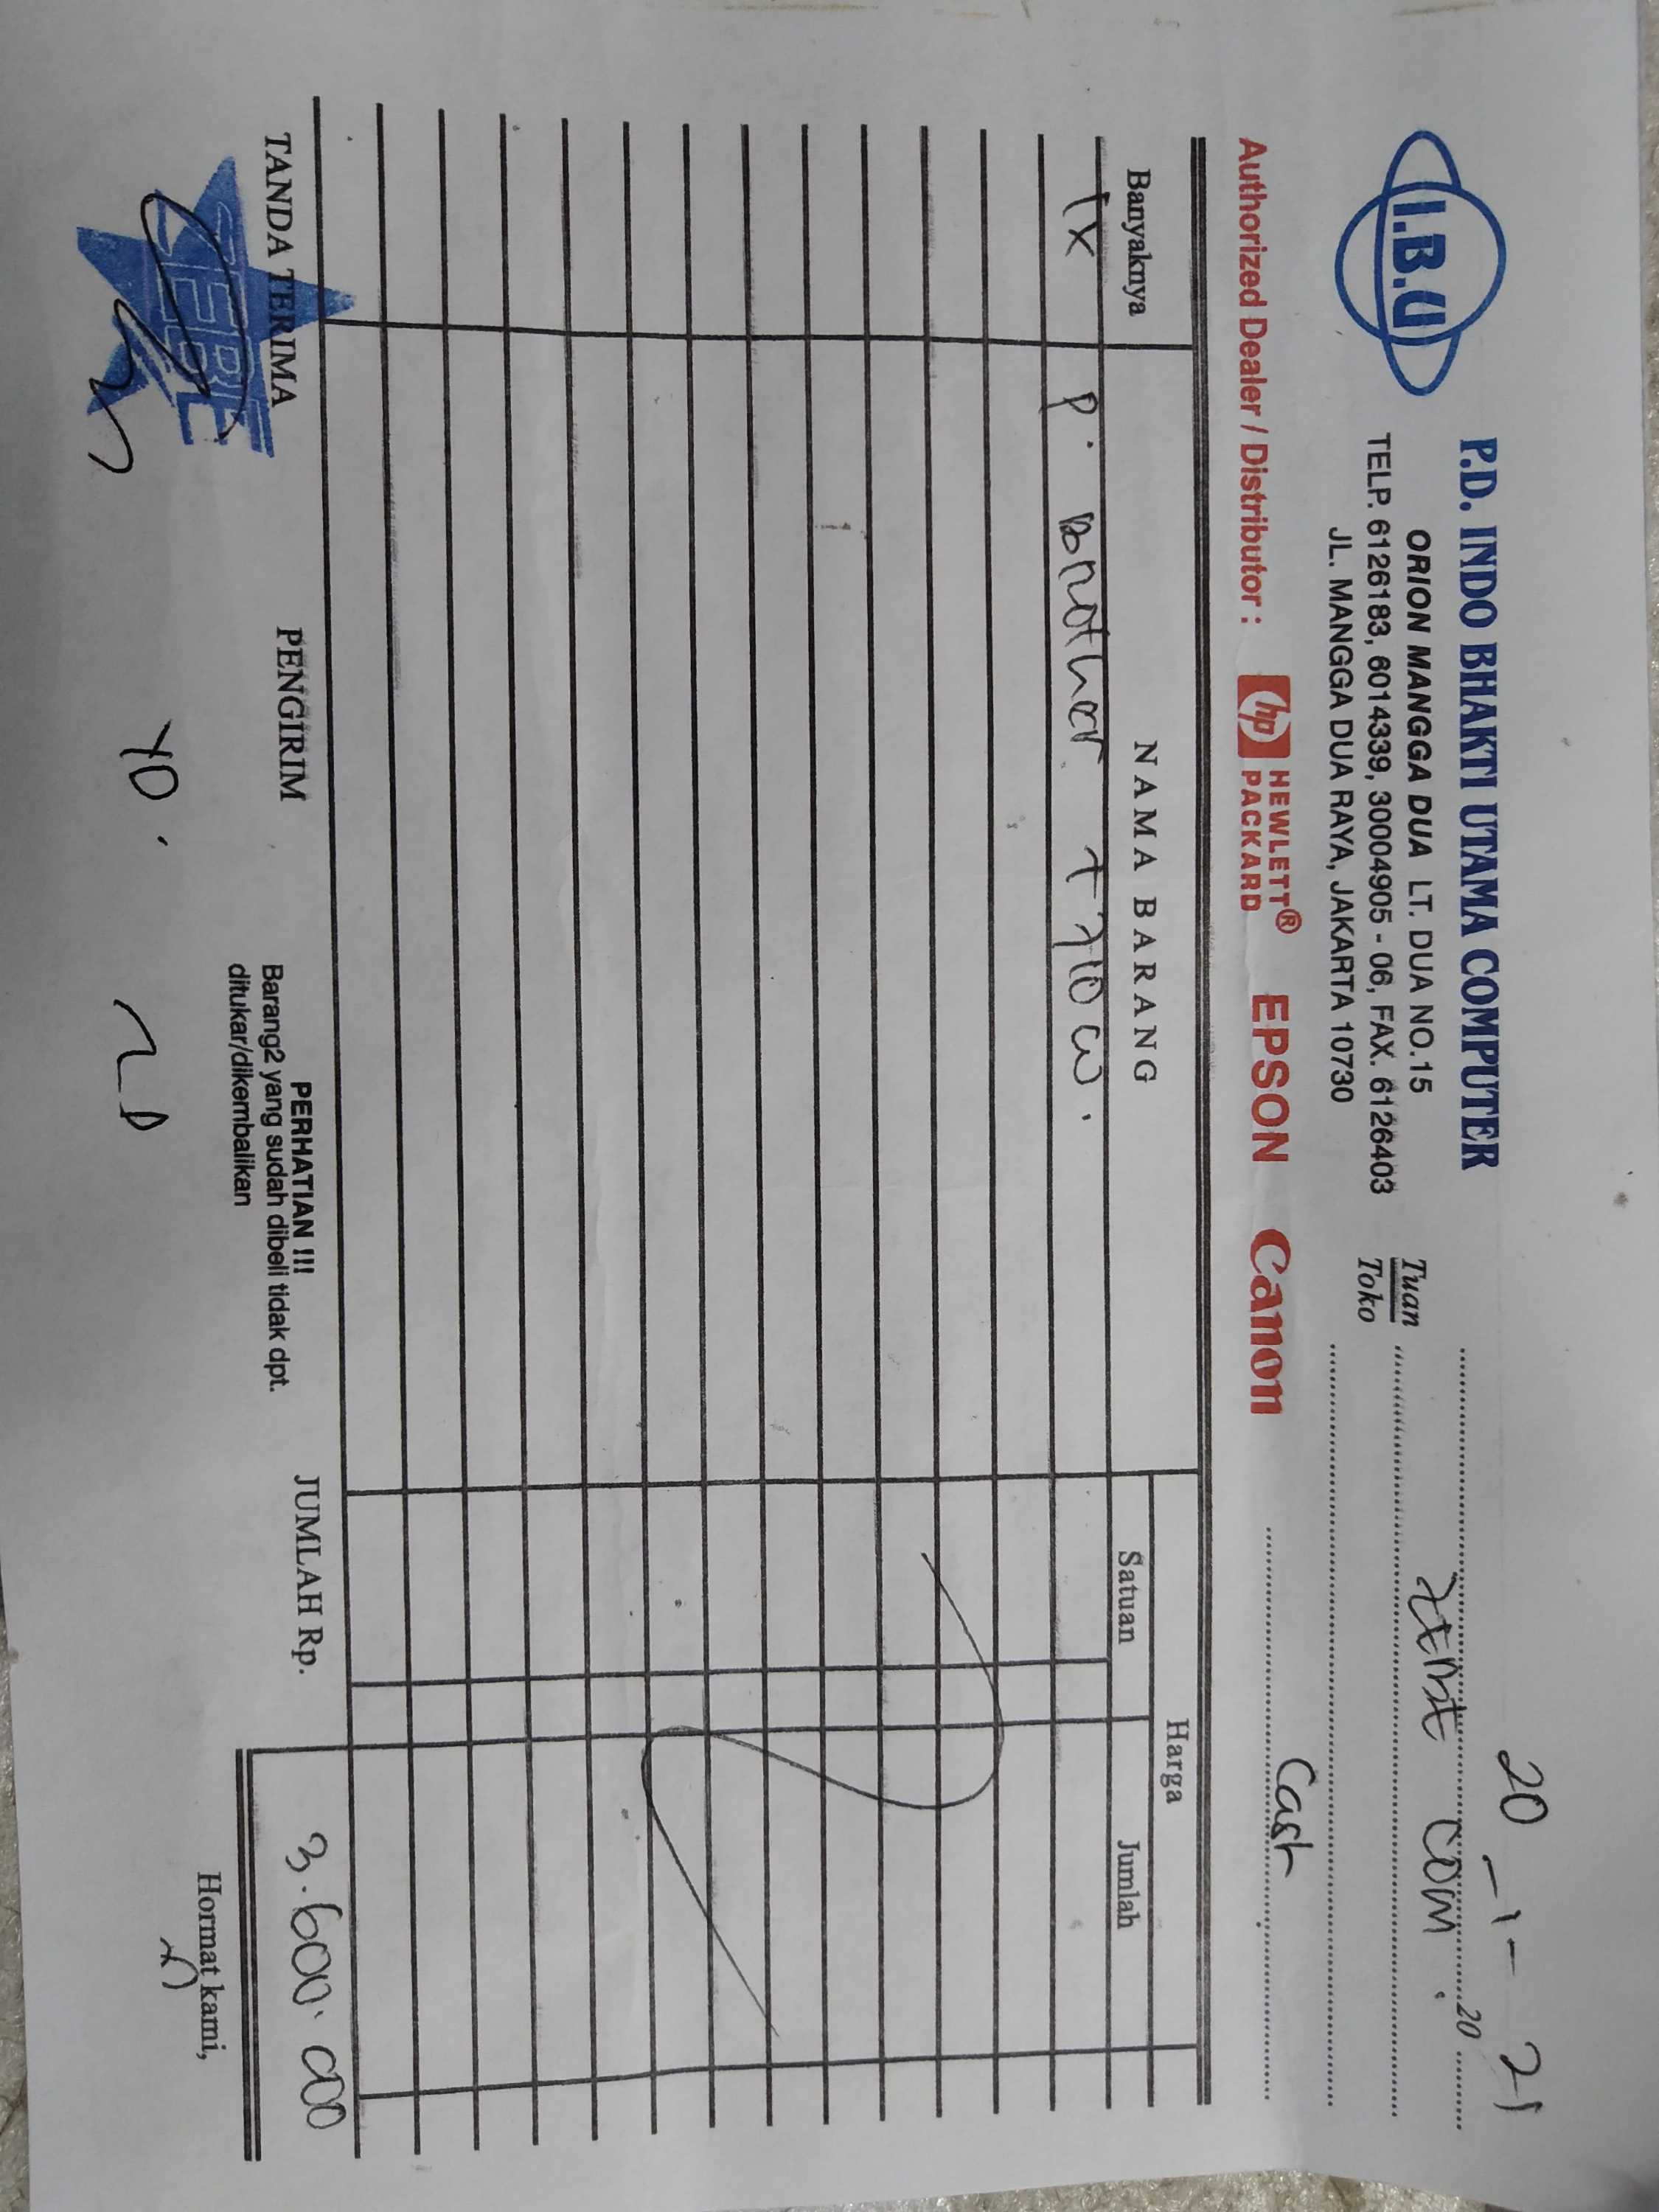 I.B.U
P.D. INDO BHAKTI UTAMA COMPUTER
ORION MANGGA DUA LT. DUA NO.15
TELP. 6126183, 6014339, 30004905 - 06, FAX. 6126403
JL. MANGGA DUA RAYA, JAKARTA 10730
20 - 1 - 21
20
Tuan
Toko
com.
Cash
Authorized Dealer / Distributor : hp HEWLETT® PACKARD EPSON Canon
Banyaknya NAMA BARANG Harga
Satuan Jumlah
1x P. Brother T 710 W.
JUMLAH Rp. 3.600.000
TANDA TERIMA
PENGIRIM
PERHATIAN !!!
Barang2 yang sudah dibeli tidak dpt.
ditukar/dikembalikan
Hormat kami,
YD.